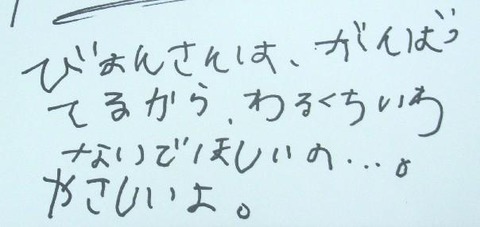 びょんさんは、がんばっ
てるから、わるくちいわ
ないでほしいの...。
やさしいよ。